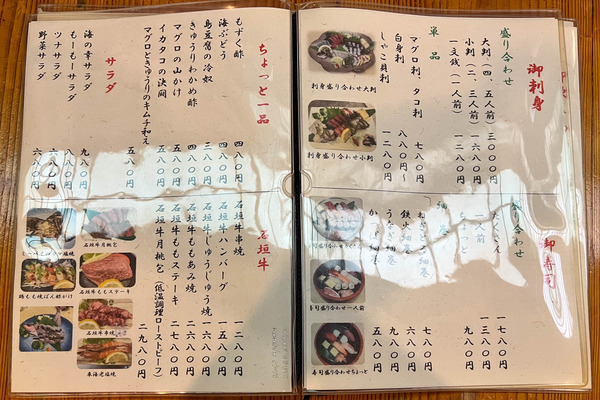 御刺身
盛り合わせ
大判(四、五人前) 三〇〇〇円
小判(二、三人前) 一六八〇円
一文銭(一人前) 一二八〇円
単品
マグロ刺、タコ刺 七八〇円
白身刺 八八〇円~
しゃこ貝刺 一二八〇円
刺身盛り合わせ大判
刺身盛り合わせ小判
御寿司
盛り合わせ
たくさん 一七八〇円
一人前 一三八〇円
ちょっと 九八〇円
細巻
細巻 七八〇円
鉄火細巻 六八〇円
うなぎ細巻 九八〇円
細巻 五八〇円
寿司盛り合わせ一人前
寿司盛り合わせちょっと
ちょっと一品
もずく酢 四八〇円
海ぶどう 四八〇円
島豆腐の冷奴 三八〇円
きゅうりわかめ酢 四八〇円
マグロの山かけ 五八〇円
イカタコの沖縄 五八〇円
マグロときゅうりのキムチ和え 五八〇円
サラダ
海の幸サラダ 九八〇円
もーもーサラダ 八八〇円
ツナサラダ 六八〇円
野菜サラダ 六八〇円
石垣牛
石垣牛串焼 一二八〇円
石垣牛ハンバーグ 一五八〇円
石垣牛じゅうしゅう焼 一六八〇円
石垣牛ももあみ焼 二六八〇円
石垣牛ももステーキ 二七八〇円
石垣牛月桃包(低温調理ローストビーフ) 二九八〇円
石垣牛月桃包
石垣牛ももステーキ
鶏もも焼ぽん酢がけ
石垣牛串焼
車海老塩焼